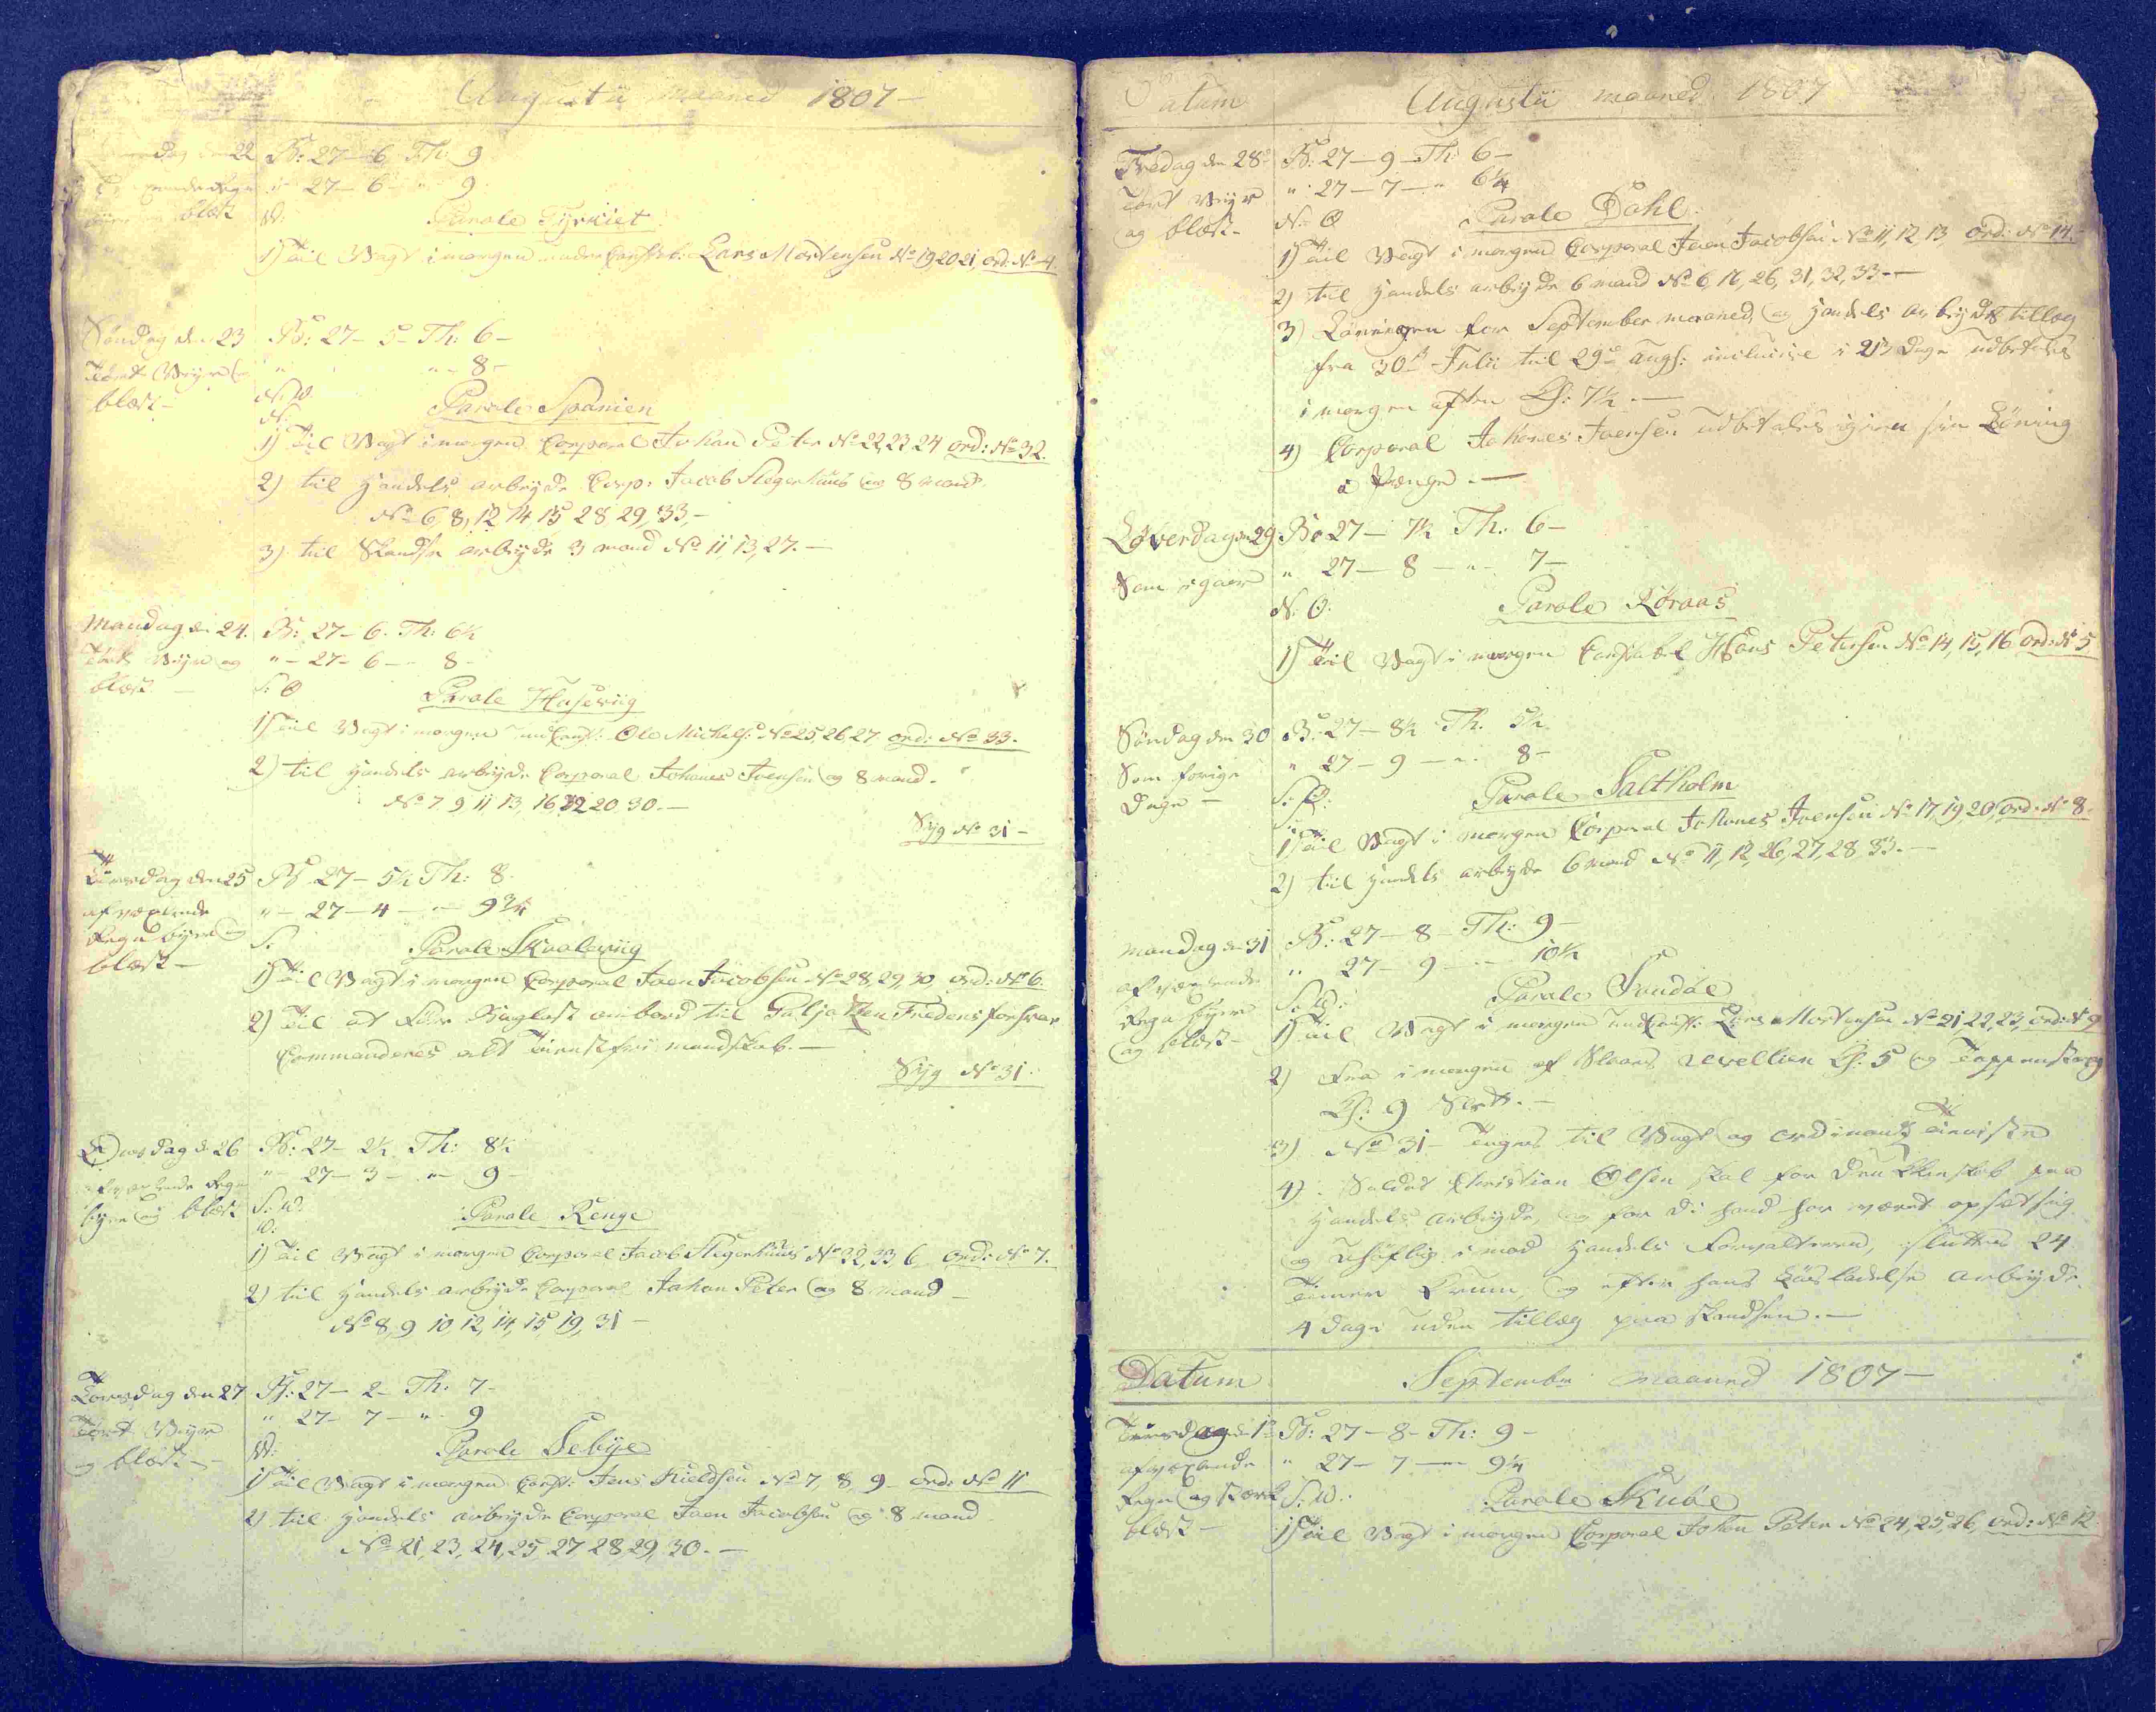 Augustii maaned 1807 —
dag den 22 B: 27 – 6 Th: 9
27 – 6 – " 9
blæst W:
Parole Tyrkiet
1) Til Vagt i morgen underConstab: Lars Mortensen No 19 20 21, ord: No 4.
Søndag den 23 B: 27 – 5 – Th: 6 –
Tørt Veyr og " " – 8 –
blæst – N:W.
N:
Parole Spanien
1) Til Vagt i morgen Corporal Johan Peter No 22, 23 24 ord: No 32.
2) til Handels arbeyde Corp: Jacob Slegerhuus og 8 mand
No 6, 8, 12 14 15 28 29, 33. –
3) til Skandse arbeyde 3 mand No 11, 13, 27. —
Mandag d. 24. B: 27 – 6. Th: 6½
Tørt Veyr og " – 27 – 6 – " 8 –
blæst – S: O
Parole Husewiig
1) Til Vagt i morgen UndConst: Ole Michels: No 25, 26, 27 ord: No 33.
2) til Handels arbeyde Corporal Johanes Joensen og 8 mand.
No 7 9 11 13, 16, 19 20 30. —
Syg No 31 –
Tirsdag den 25 B 27 – 5½ Th: 8 –
afvexlende " – 27 – 4 – " – 9¾
Regn byger og S.
blæst –
Parole Skaalewiig
1) Til Vagt i morgen Corporal Joen Jacobsen No 28, 29, 30, ord: No 6.
2) Til at føre Baglast ombord til Galjothen Fredens forsvar
Commanderes alt Tienstfri mandskab. —
Syg No 31.
Onsdag d. 26 B: 27 – 2½ Th: 8½
afvexlende Regn " – 27 – 3 – " – 9 –
byger og blæst S: W:
W:
Parole Renge
1) Til Vagt i morgen Corporal Jacob Slegerhuus No 32, 33, 6 ord: No 7.
2) til Handels arbeyde Corporal Johan Peter og 8 mand –
No 8, 9 10, 12, 14, 15, 19, 31 –
Torsdag den 27 B: 27 – 2 – Th: 7 –
Tørt Veyr " 27 – 7 – " – 9
og blæst — W:
Parole Sebye
1) Til Vagt i morgen Const: Jens Kieldsen No 7, 8, 9 – ord: No 11
2) til Handels arbeyde Corporal Joen Jacobsen og 8 mand
No 21, 23, 24, 25 27 28 29, 30. —
Datum Augustii maaned 1807
Fredag den 28de B: 27 – 9 – Th: 6 –
Tørt Veyr " 27 – 7 – " 6¼
og blæst – N: O
Parole Dahl.
1) Til Vagt i morgen Corporal Joen Jacobsen No 11, 12, 13 ord: No 14.
2) til Handels arbeyde 6 mand No 6, 16, 26, 31, 32, 33. —
3) Lønningen for September maaned, og Handels arbeyds tillæg
fra 30te Julii til 29de Augs: inclusive i Dage udbetales
i morgen aften Kl: 7½. —
4) Corporal Johanes Joensen udbetales igien sin Lønning
i Penge. —
Løverdag d. 29 B: 27 – 7½ Th: 6 –
Som igaar " 27 – 8 — " – 7 –
N: O:
Parole Røraas
1) Til Vagt i morgen Constabel Hans Petersen No 14, 15, 16 ord: No 5
Søndag den 30 B: 27 – 8½ Th. 5½
Som forige " 27 – 9 — " . 8 –
Dage – S: O:
S:
Parole Saltholm
1) Til Vagt i morgen Corporal Johanes Joensen No 17, 19, 20, ord: No 8.
2) til Handels arbeyde 6 mand No 11, 12, 26, 27, 28, 33. —
Mandag d. 31 B: 27 – 8 – Th: 9 –
afvexlende " 27 – 9 – " – 10½
Regn byger S: W:
og blæst –
Parole Sandøe
1) Til Vagt i morgen UndConst: Lars Mortensen No 21, 22, 23, ord: No 9
2) Fra i morgen af Slaaes Revellien Kl: 5 og Tappenstreg
Kl: 9 Slet. —
3) No 31 – Tages til Vagt og ordinants Tieniste
4) Soldat Christian Olsen skal for Drukkenskab paa
Handels arbeyde, og for di hand har været opsætsig
og uhøflig imod Handels Forvalteren, sluttes 24
Timer Krum, og efter hans Løsladelse arbeyde
4 dage uden tillæg paa Skandsen. —
Datum September maaned 1807 —
Tirsdag d. 1te B: 27 – 8 – Th: 9 –
afvexlende " 27 – 7 — " 9¼
Regn og stærk S: W:
blæst –
Parole Skube
1) Til Vagt i morgen Corporal Johan Peter No 24, 25, 26, ord: No 12